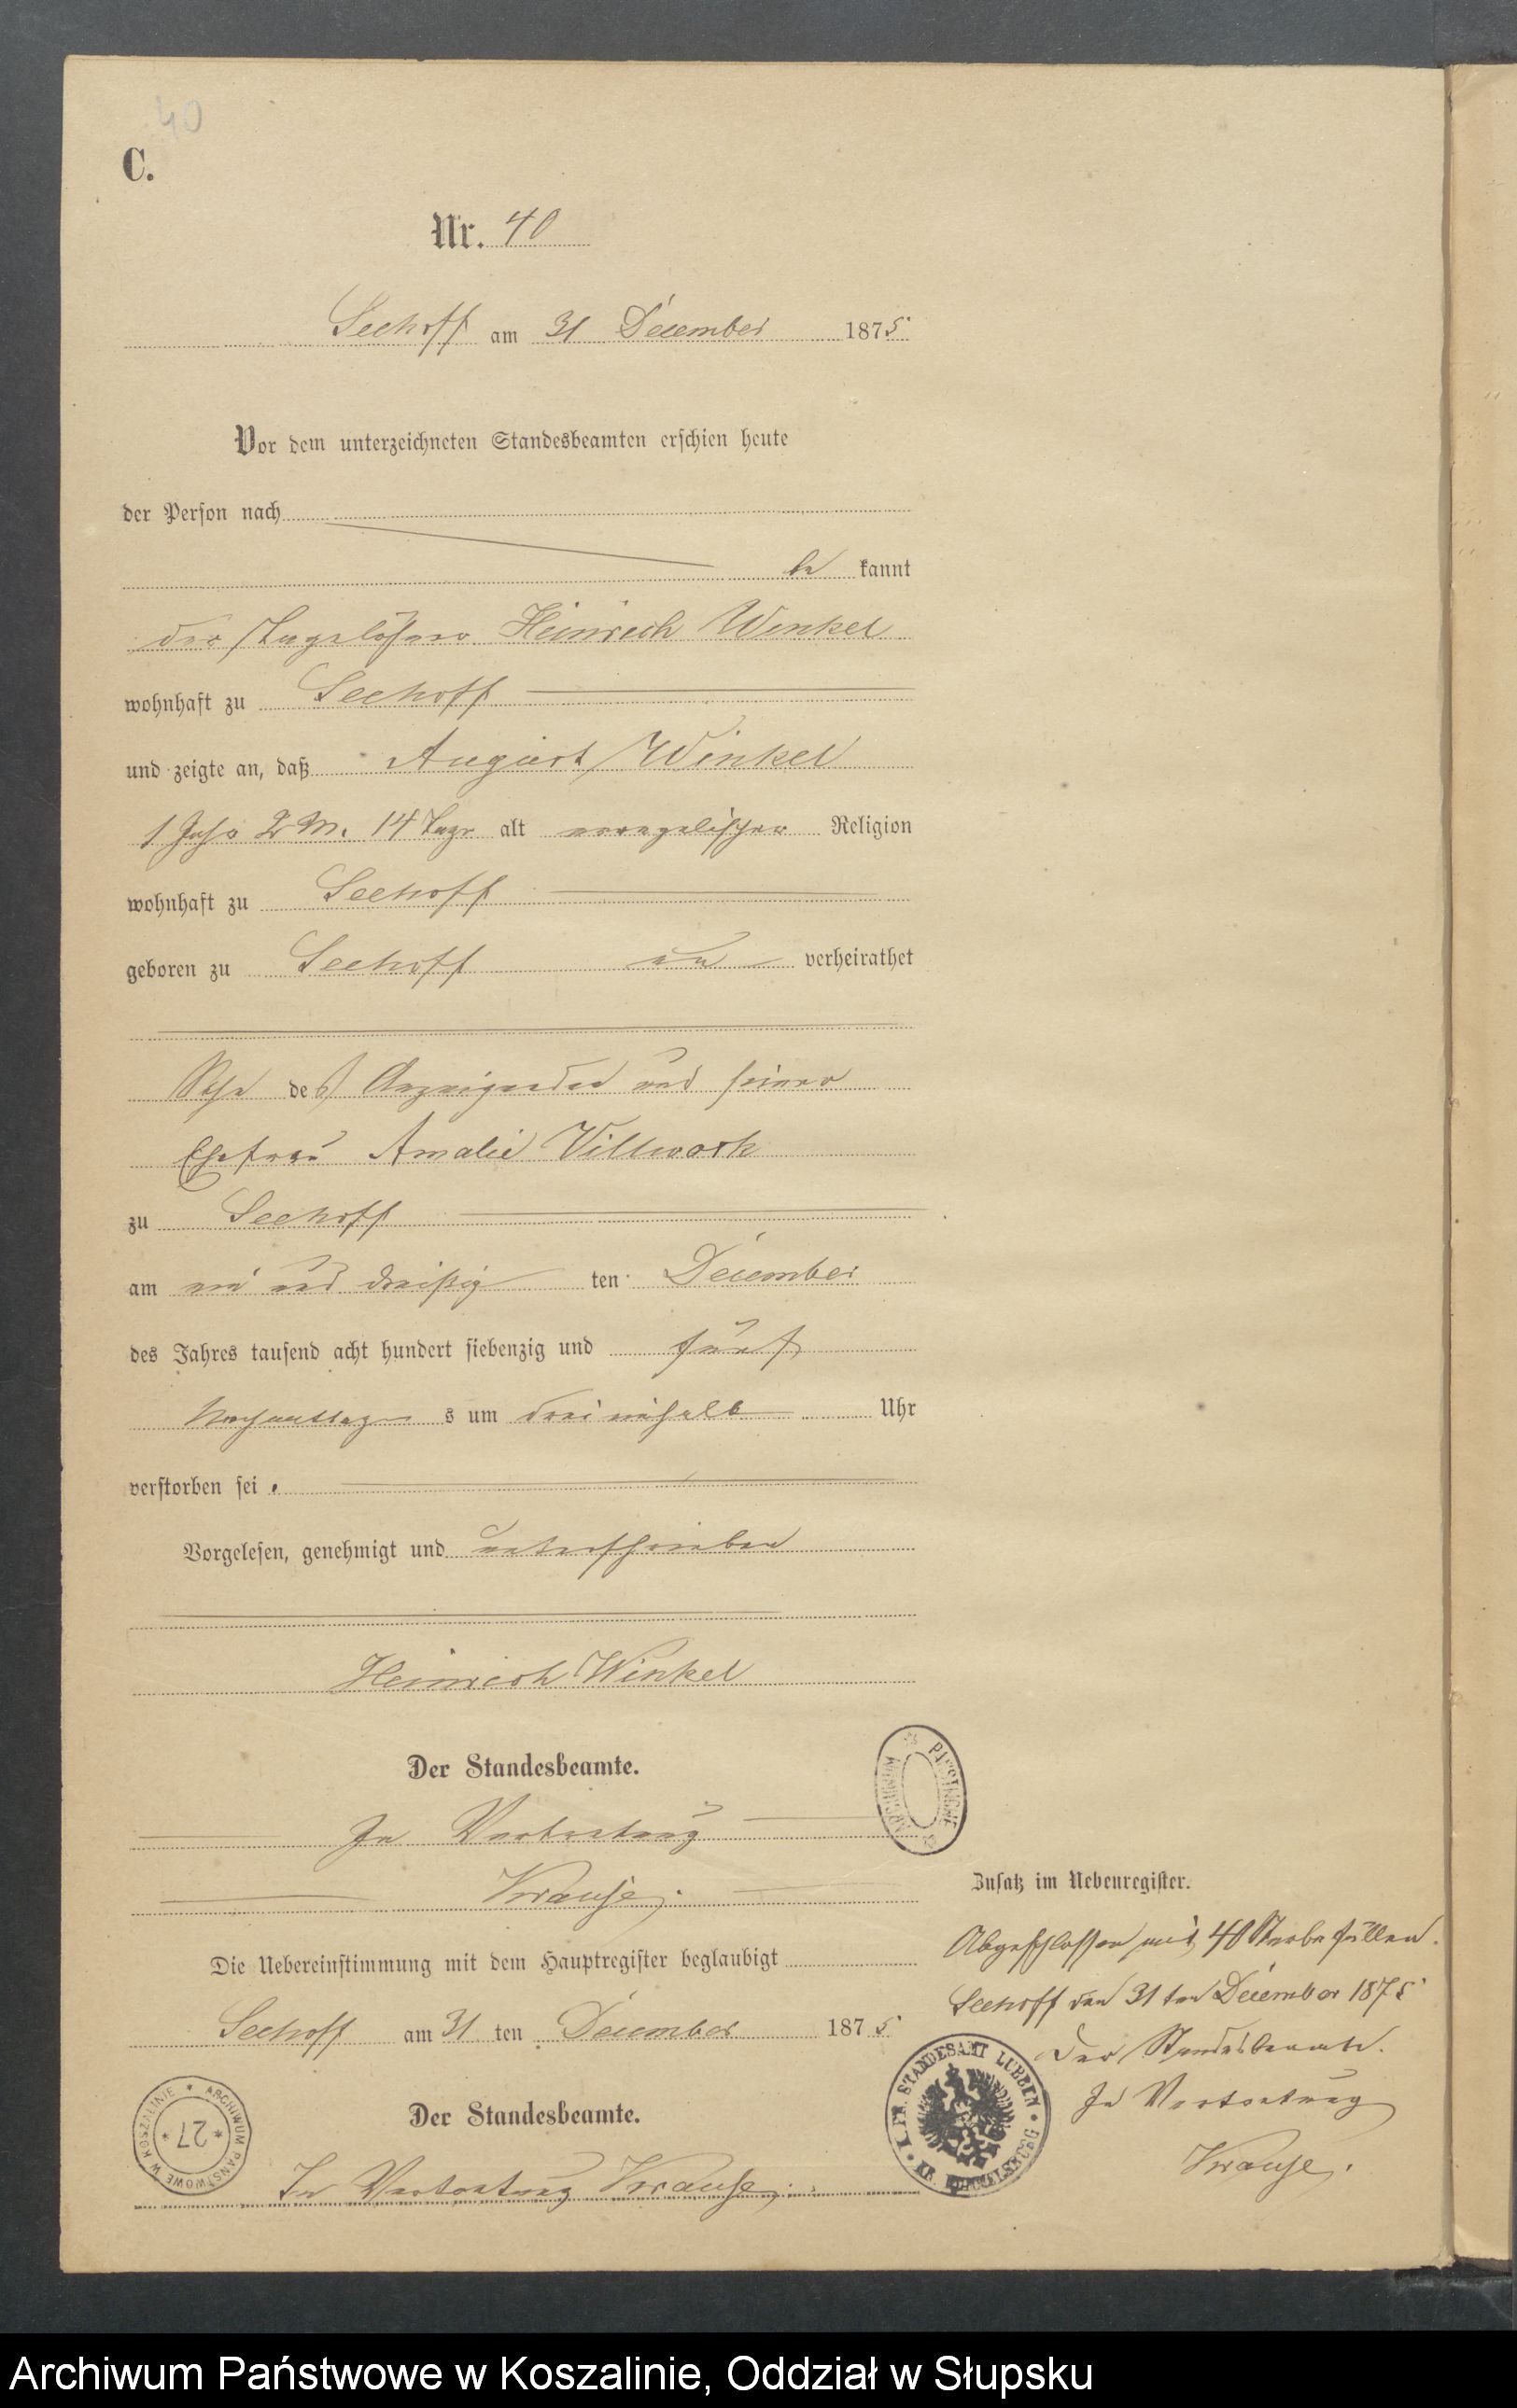 40
C.
Nr. 40
Seehoff am 31 December 1875
Vor dem unterzeichneten Standesbeamten erschien heute
der Person nach
be kannt
der Tagelöhner Heinrich Winkel
wohnhaft zu Seehoff
und zeigte an, daß August Winkel
1 Jahr 2 M. 14 Tage alt evangelischer Religion
wohnhaft zu Seehoff
geboren zu Seehoff un verheirathet
Sohn des Anzeigenden und seiner
Ehefrau Amalie Villwock
zu Seehoff
am ein und dreißig ten December
des Jahres tausend acht hundert siebenzig und fünf
Nachmittag s um drei einhalb Uhr
verstorben sei.
Vorgelesen, genehmigt und unterschrieben
Heinrich Winkel
Der Standesbeamte.
In Vertretung
Krause.
Die Uebereinstimmung mit dem Hauptregister beglaubigt
Seehoff am 31 ten December 1875
Der Standesbeamte.
In Vertretung Krause.
Zusatz im Nebenregister.
Abgeschlossen mit 40 Sterbefällen.
Seehoff den 31ten December 1875
Der Standesbeamte.
In Vertretung
Krause.
ARCHIWUM PAŃSTWOWE W KOSZALINIE
* 27 *
K. PR. STANDESAMT LÜBBEN
KR. RUMMELSBURG
Archiwum Państwowe w Koszalinie, Oddział w Słupsku